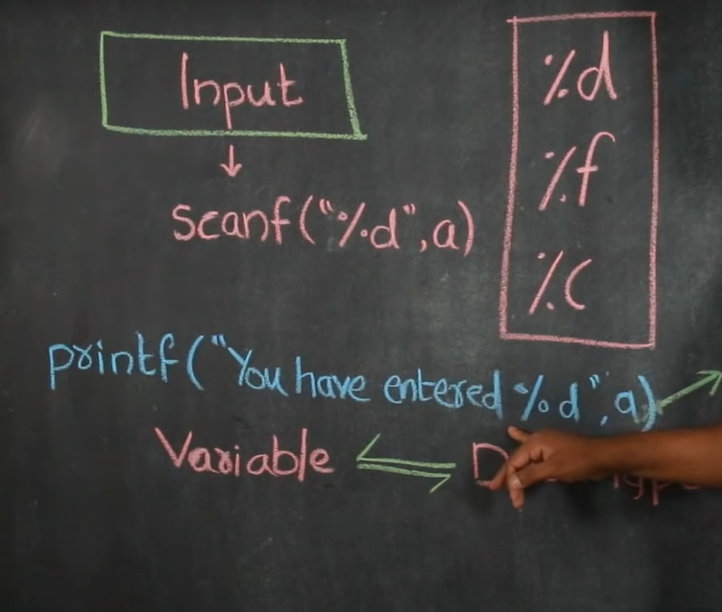 Input
scanf("%d",a)
%d
%f
%c
printf("You have entered %d",a)
Variable